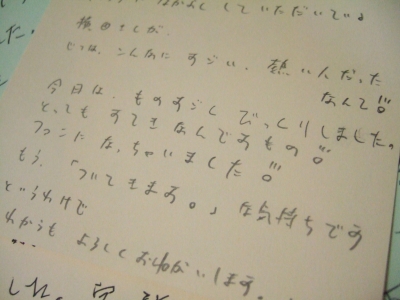 していただいている
横田さんが、
じつは、こんなに すごい、熱い人だった
なんて!!
今日は、ものすごく びっくりしました。
とっても すてきなんですもの!!
ファンに なっちゃいました!!!
もう、「ついてきます。」な気持ちです
というわけで
これからも よろしくおねがいします。